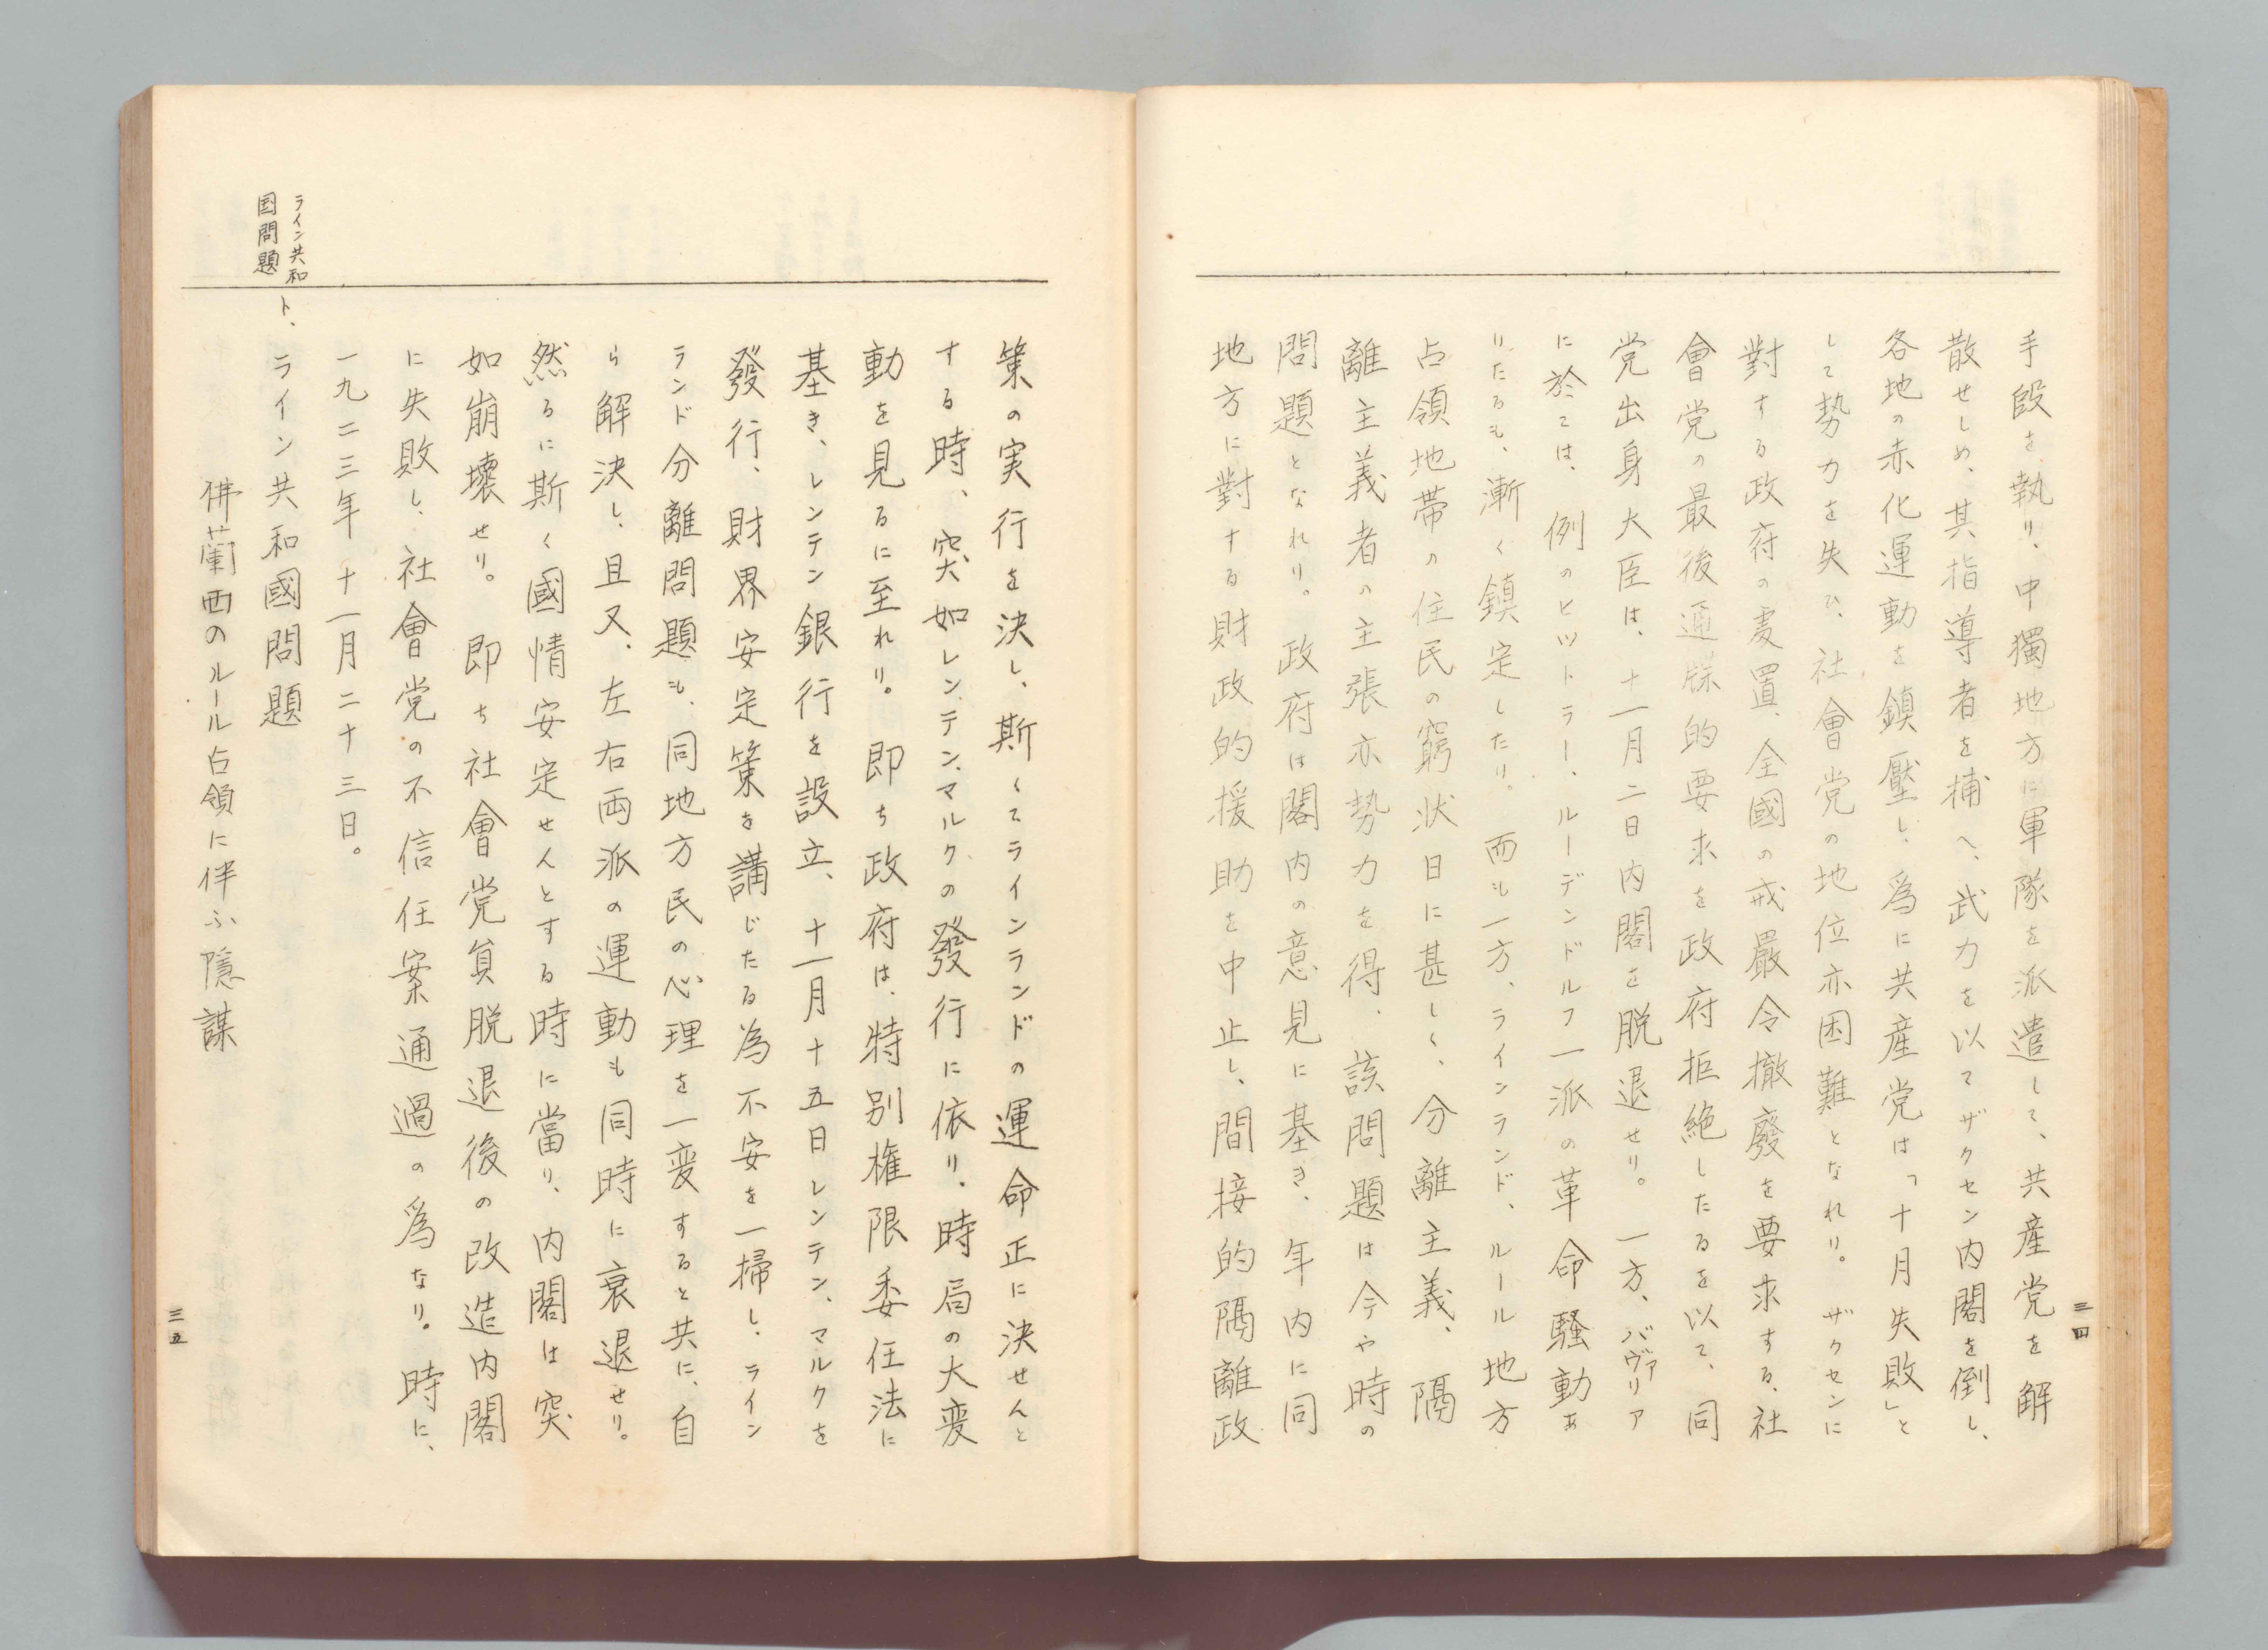 手段を執り、中獨地方に軍隊を派遣して、共産党を解
散せしめ、其指導者を捕へ、武力を以てザクセン内閣を倒し、
各地の赤化運動を鎮壓し、爲に共産党は「十月失敗」と
して勢力を失ひ、社會党の地位亦困難となれり。ザクセンに
對する政府の処置、全國の戒嚴令撤廢を要求する、社
會党の最後通牒的要求を政府拒絶したるを以て、同
党出身大臣は、十一月二日内閣を脱退せり。一方、バヴァリア
に於ては、例のヒットラー、ルーデンドルフ一派の革命騒動あ
りたるも、漸く鎮定したり。而も一方、ラインランド、ルール地方
占領地帯の住民の窮状日に甚しく、分離主義、隔
離主義者の主張亦勢力を得、該問題は今や時の
問題となれり。政府は閣内の意見に基き、年内に同
地方に對する財政的援助を中止し、間接的隔離政
三四
策の実行を決し、斯くてラインランドの運命正に決せんと
する時、突如レンテン、マルクの發行に依り、時局の大変
動を見るに至れり。即ち政府は、特別権限委任法に
基き、レンテン銀行を設立、十一月十五日レンテン、マルクを
發行、財界安定策を講じたる為不安を一掃し、ライン
ランド分離問題も、同地方民の心理を一変すると共に、自
ら解決し、且又、左右両派の運動も同時に衰退せり。
然るに斯く國情安定せんとする時に當り、内閣は突
如崩壞せり。即ち社會党員脱退後の改造内閣
に失敗し、社會党の不信任案通過の爲なり。時に、
一九二三年十一月二十三日。
ライン共和
国問題
ト、ライン共和國問題
佛蘭西のルール占領に伴ふ隱謀
三五